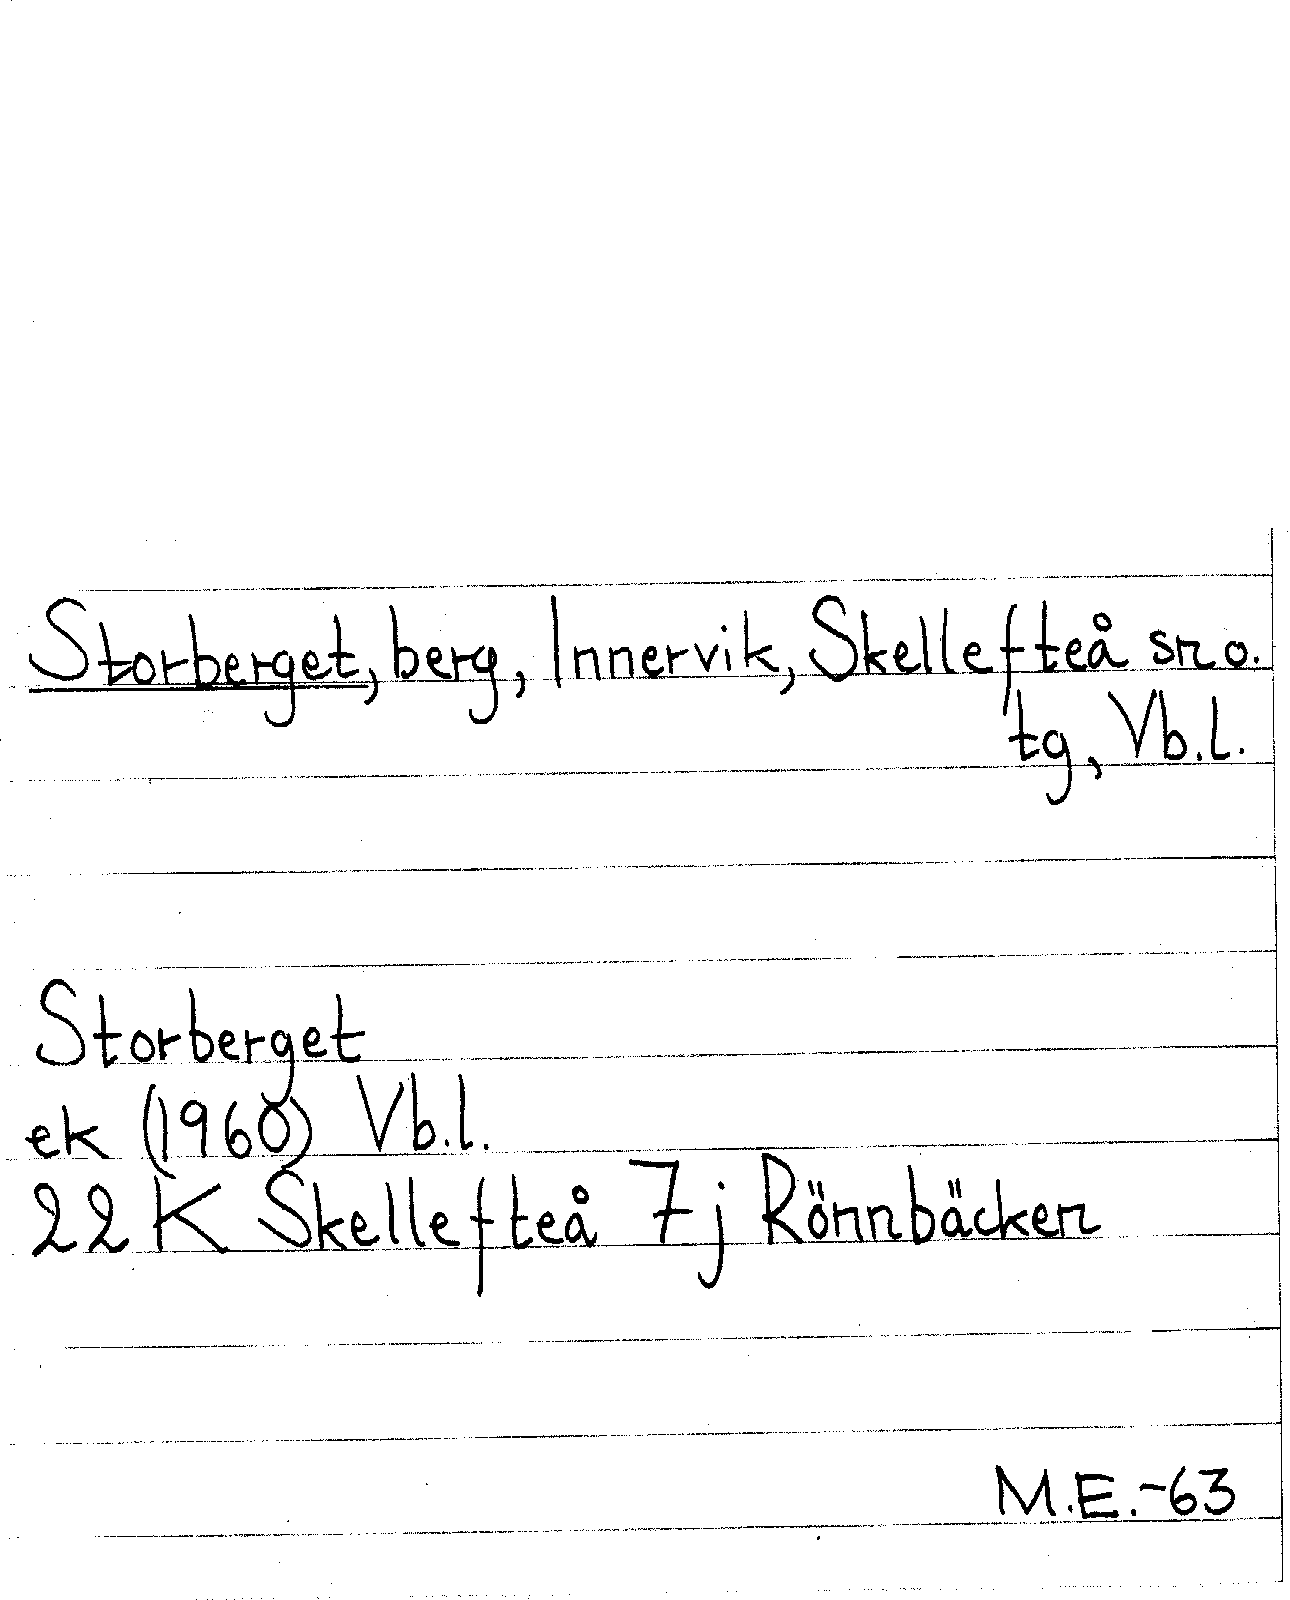 Storberget, berg, Innervik, Skellefteå sn o.
tg, Vb.l.
Storberget
ek (1960) Vb.l.
22 K Skellefteå 7j Rönnbäcken
M.E.-63